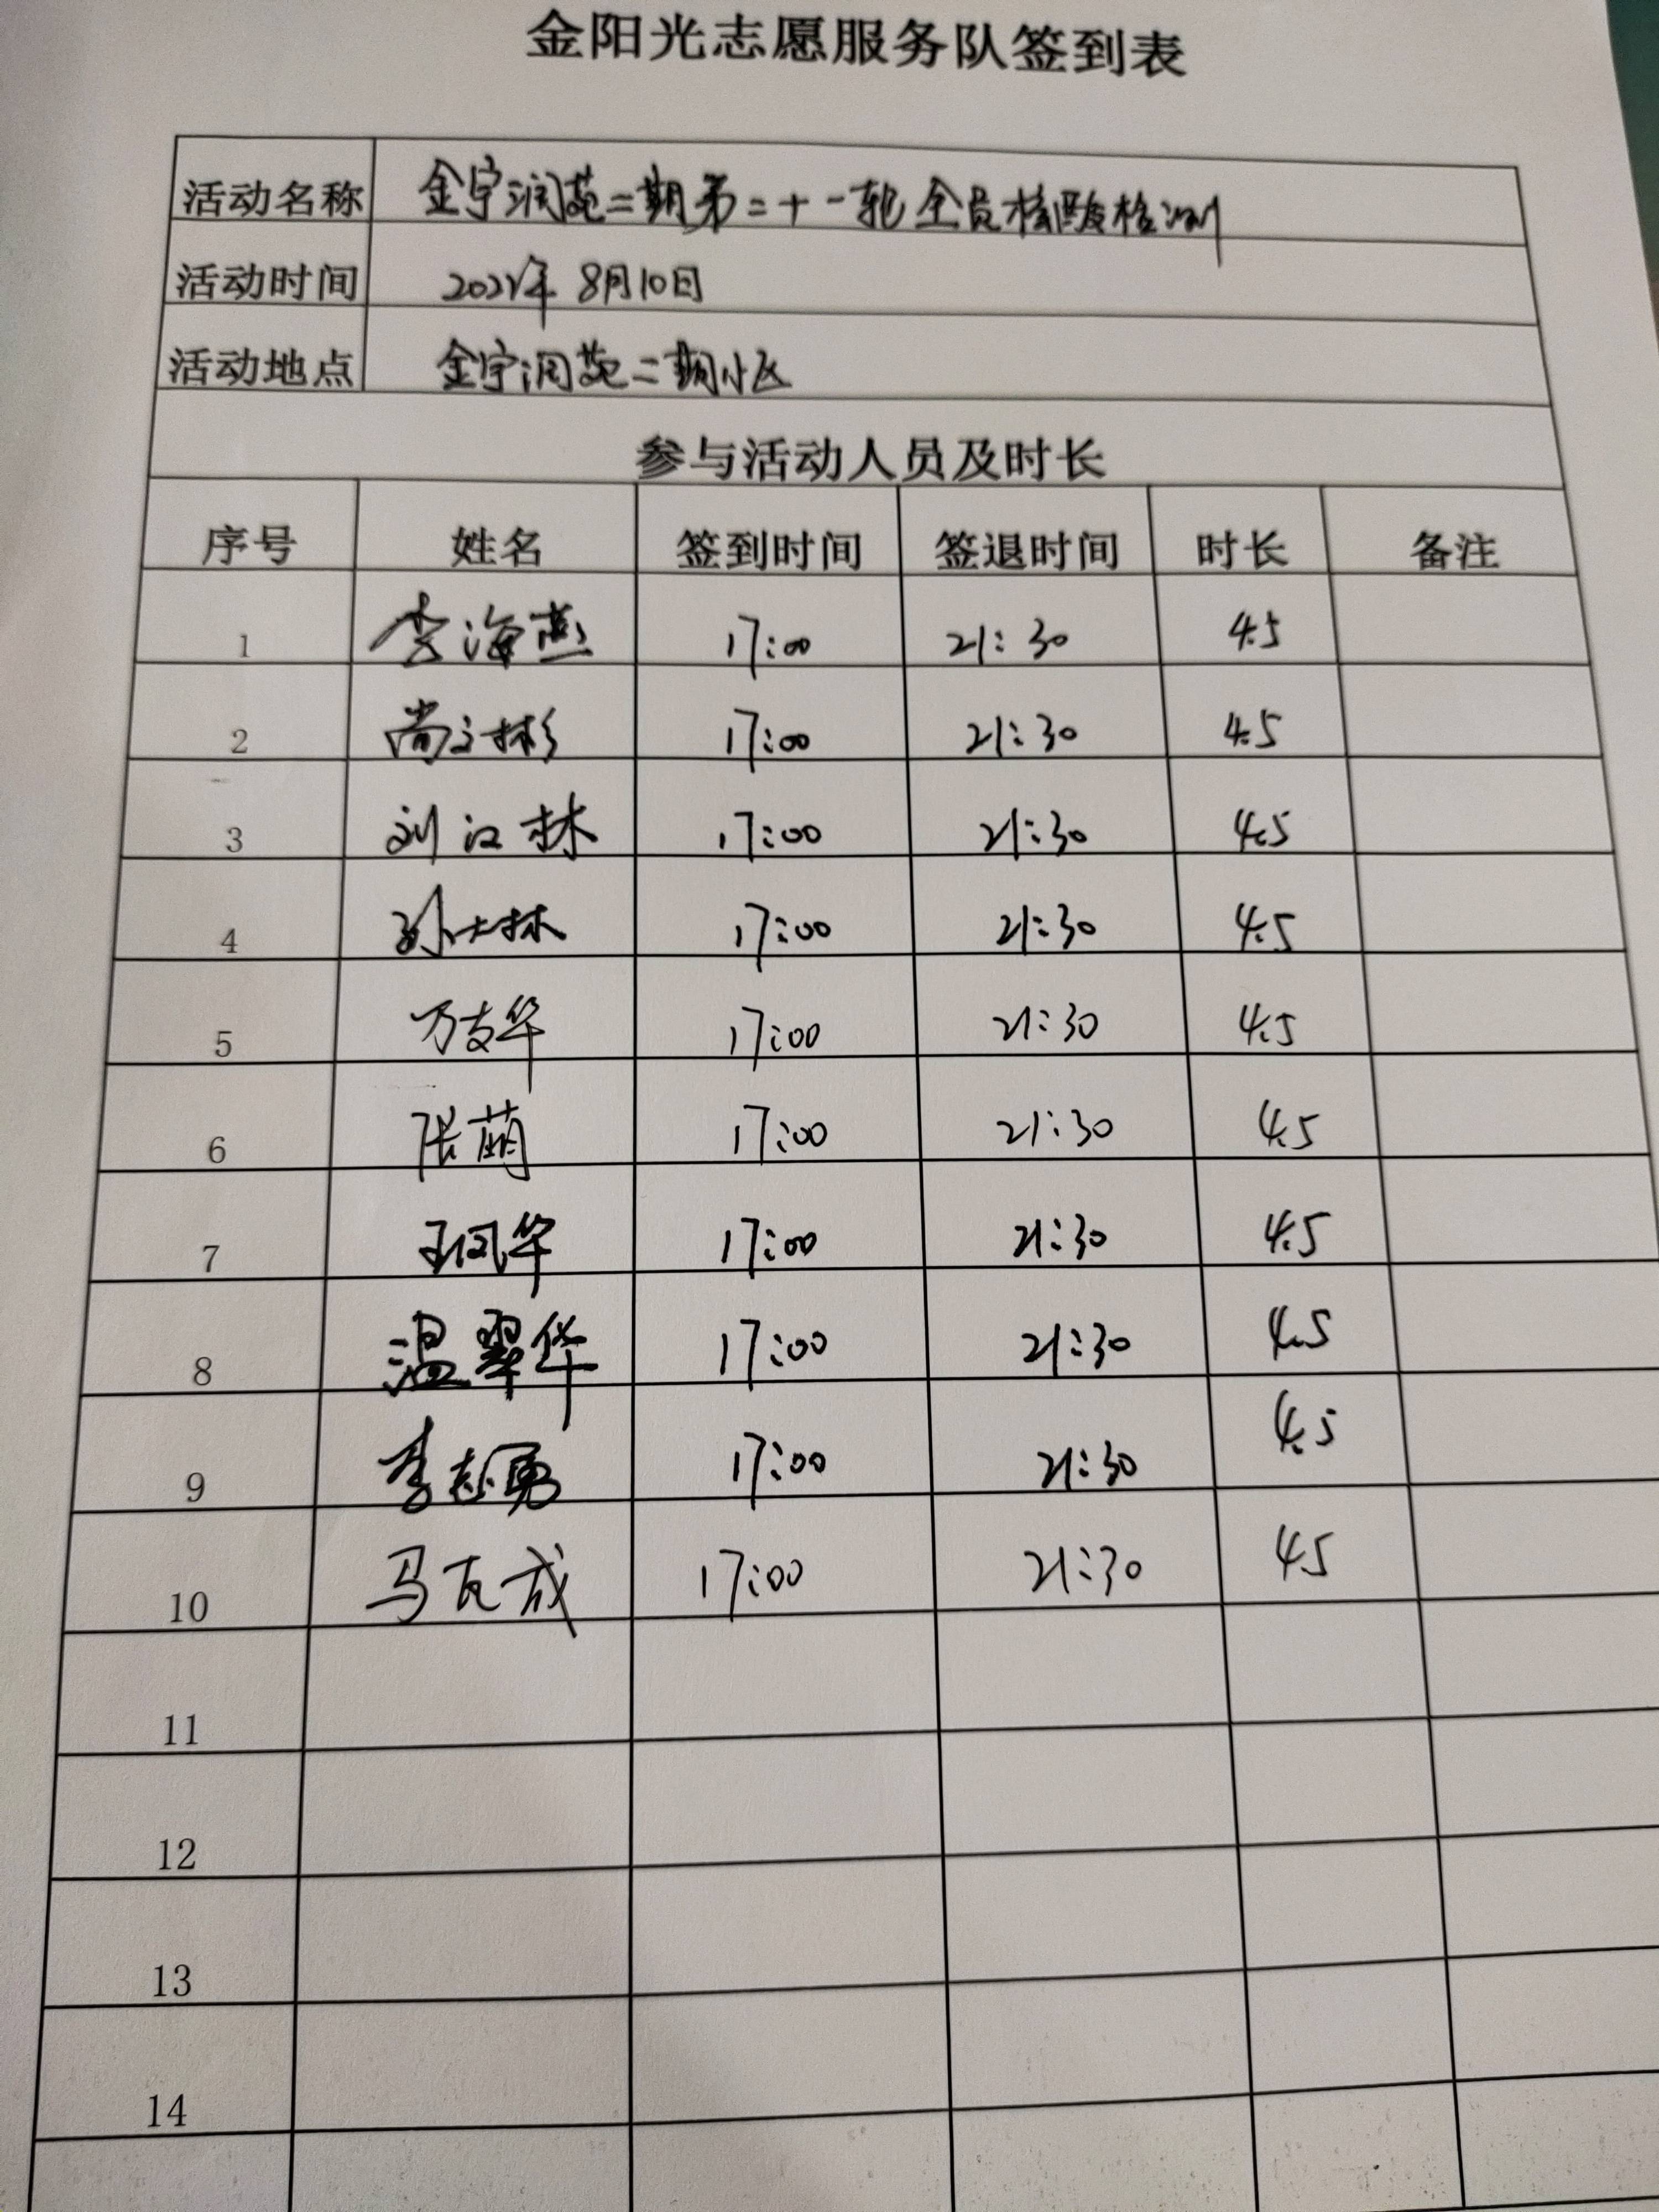 金阳光志愿服务队签到表
活动名称 金宇润苑二期第二十一轮全员核酸检测
活动时间 2022年8月10日
活动地点 金宇润苑二期小区
参与活动人员及时长
序号 姓名 签到时间 签退时间 时长 备注
1 李海燕 17:00 21:30 4.5
2 尚立彬 17:00 21:30 4.5
3 刘汉林 17:00 21:30 4.5
4 孙大林 17:00 21:30 4.5
5 万支华 17:00 21:30 4.5
6 张萌 17:00 21:30 4.5
7 王凤华 17:00 21:30 4.5
8 温翠华 17:00 21:30 4.5
9 李志勇 17:00 21:30 4.5
10 马瓦成 17:00 21:30 4.5
11
12
13
14